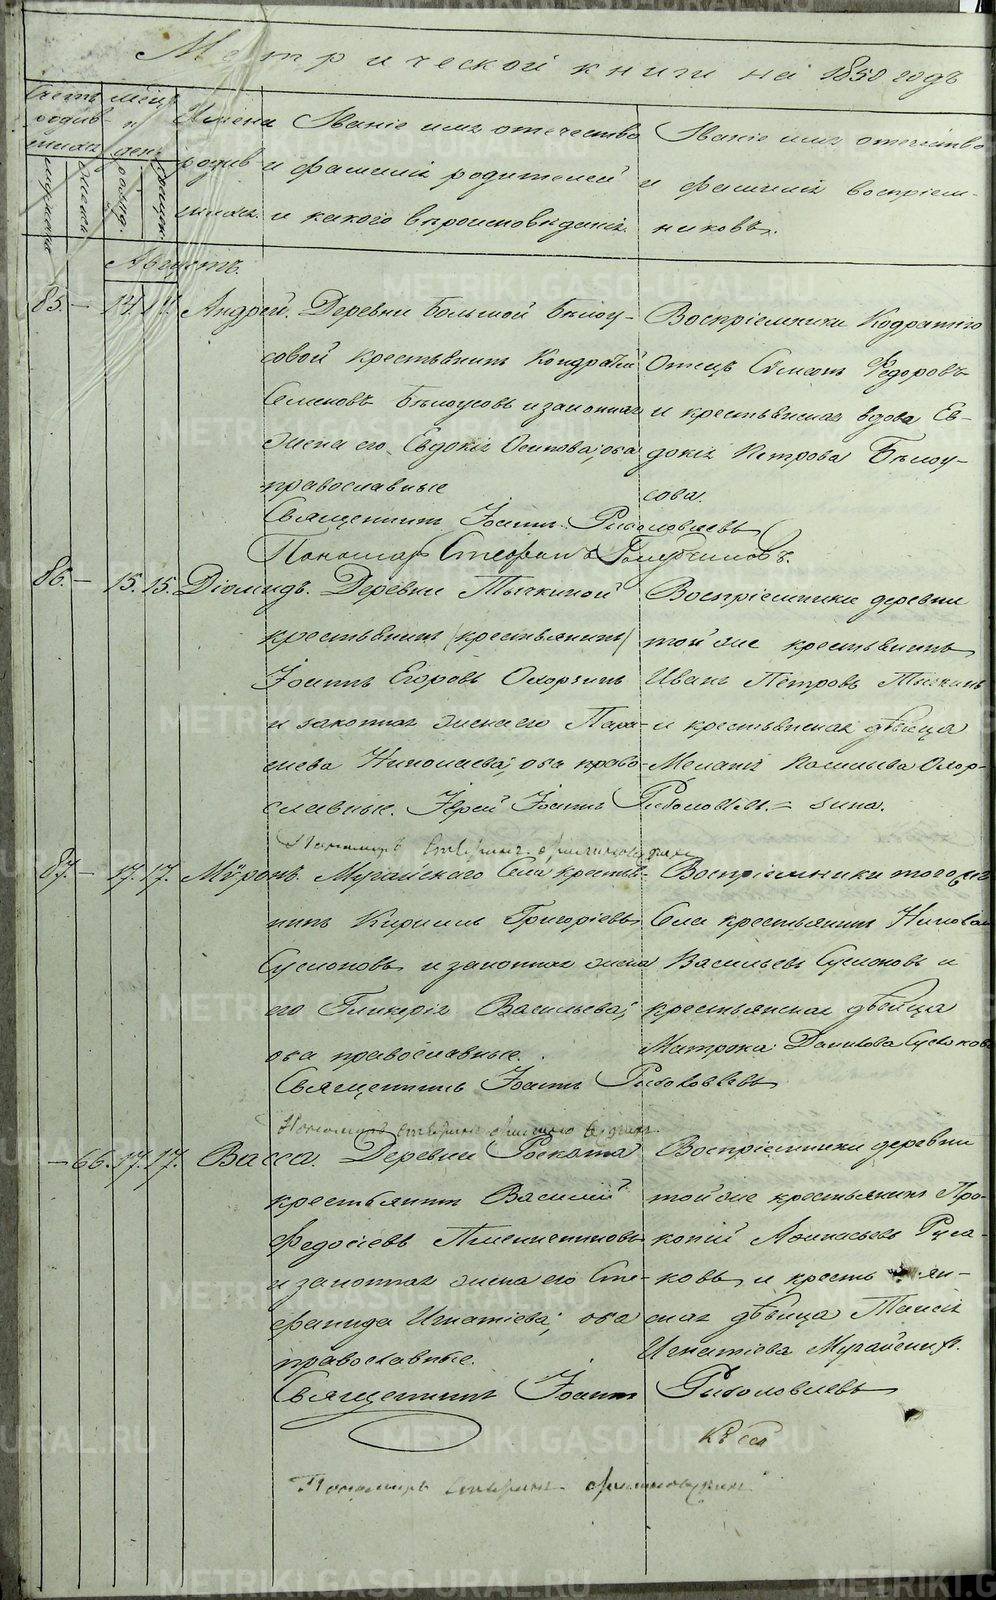 Метрической книги на 1850 годъ
Счетъ родившихся
мужеска
женска
Мѣсяцъ и день
рожд.
крещен.
Имена родившихся.
Званіе имя отечество и фамилія родителей и какого вѣроисповѣданія.
Званіе имя отечество и фамилія воспріемниковъ.
Августъ.
85. — 14. 14. Андрей. Деревни Большой Бѣлоу-
совой крестьянинъ Кондратій
Семеновъ Бѣлоусовъ и законная
жена его Евдокія Осипова, оба
православные
Священникъ Іоаннъ
Пономарь Стефанъ
Воспріемники Кодратіго
Отецъ Сѵмеонъ Ѳедоровъ
и крестьянская вдова Ев-
докія Петрова Бѣлоу-
сова.
86. — 15. 15. Діомидъ. Деревни Тычкиной
крестьянинъ (крестьянинъ)
Іоаннъ Егоровъ Охорзинъ
и законная жена его Пара-
скева Николаева, оба право-
славные. Іерей Іоаннъ
Воспріемники деревни
той же крестьянинъ
Иванъ Петровъ Тычкинъ
и крестьянская дѣвица
Меланія Васильева Охор-
зина.
87. — 17. 17. Мѵронъ. Мугайскаго Села крестья-
нинъ Кириллъ Григоріевъ
Суслоновъ и законная жена
его Гликерія Васильева;
оба православные.
Священникъ Іоаннъ
Воспріемники того же
Села крестьянинъ Николай
Васильевъ Суслоновъ и
крестьянская дѣвица
Матрона Данилова
— 66. 17. 17. Васса. Деревни
крестьянинъ Василій
Ѳедосіевъ Пшеничниковъ
и законная жена его Сте-
фанида Игнатіева; оба
православные.
Священникъ Іоаннъ
Воспріемники деревни
той же крестьянинъ Про-
копій Аѳанасьевъ Руса-
ковъ и кресть ян-
ская дѣвица Таисія
Игнатіева
Пономарь
METRIKI.GASO-URAL.RU